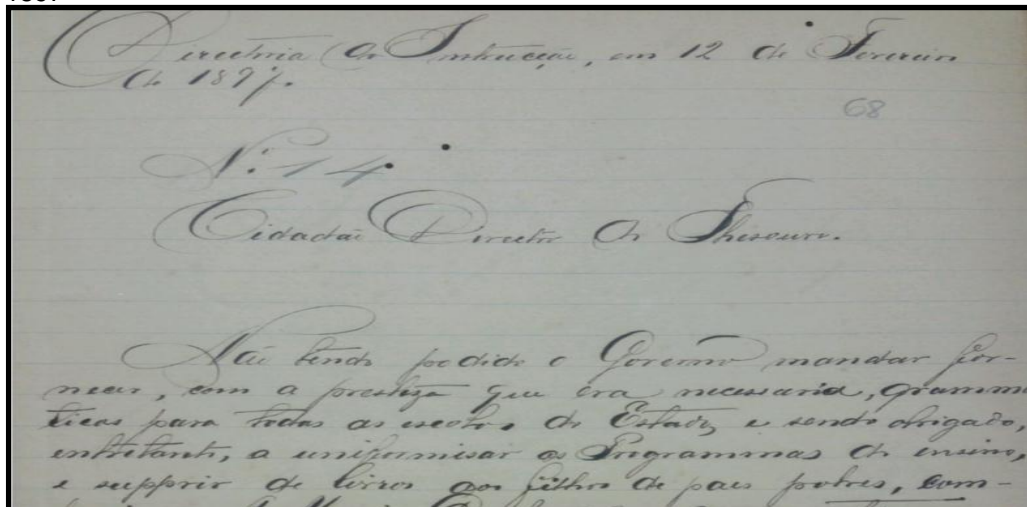 Directoria da Instrucção, em 12 de Fevereiro
de 1897.
68
N.º 14
Cidadão Director do Thesouro.
Não tendo podido o Governo mandar for-
necer, com a presteza que era necessaria, gramma
ticas para todas as escolas do Estado, e sendo obrigado,
entretanto, a uniformisar os Programmas de ensino,
e supprir de livros aos filhos de paes pobres, com-